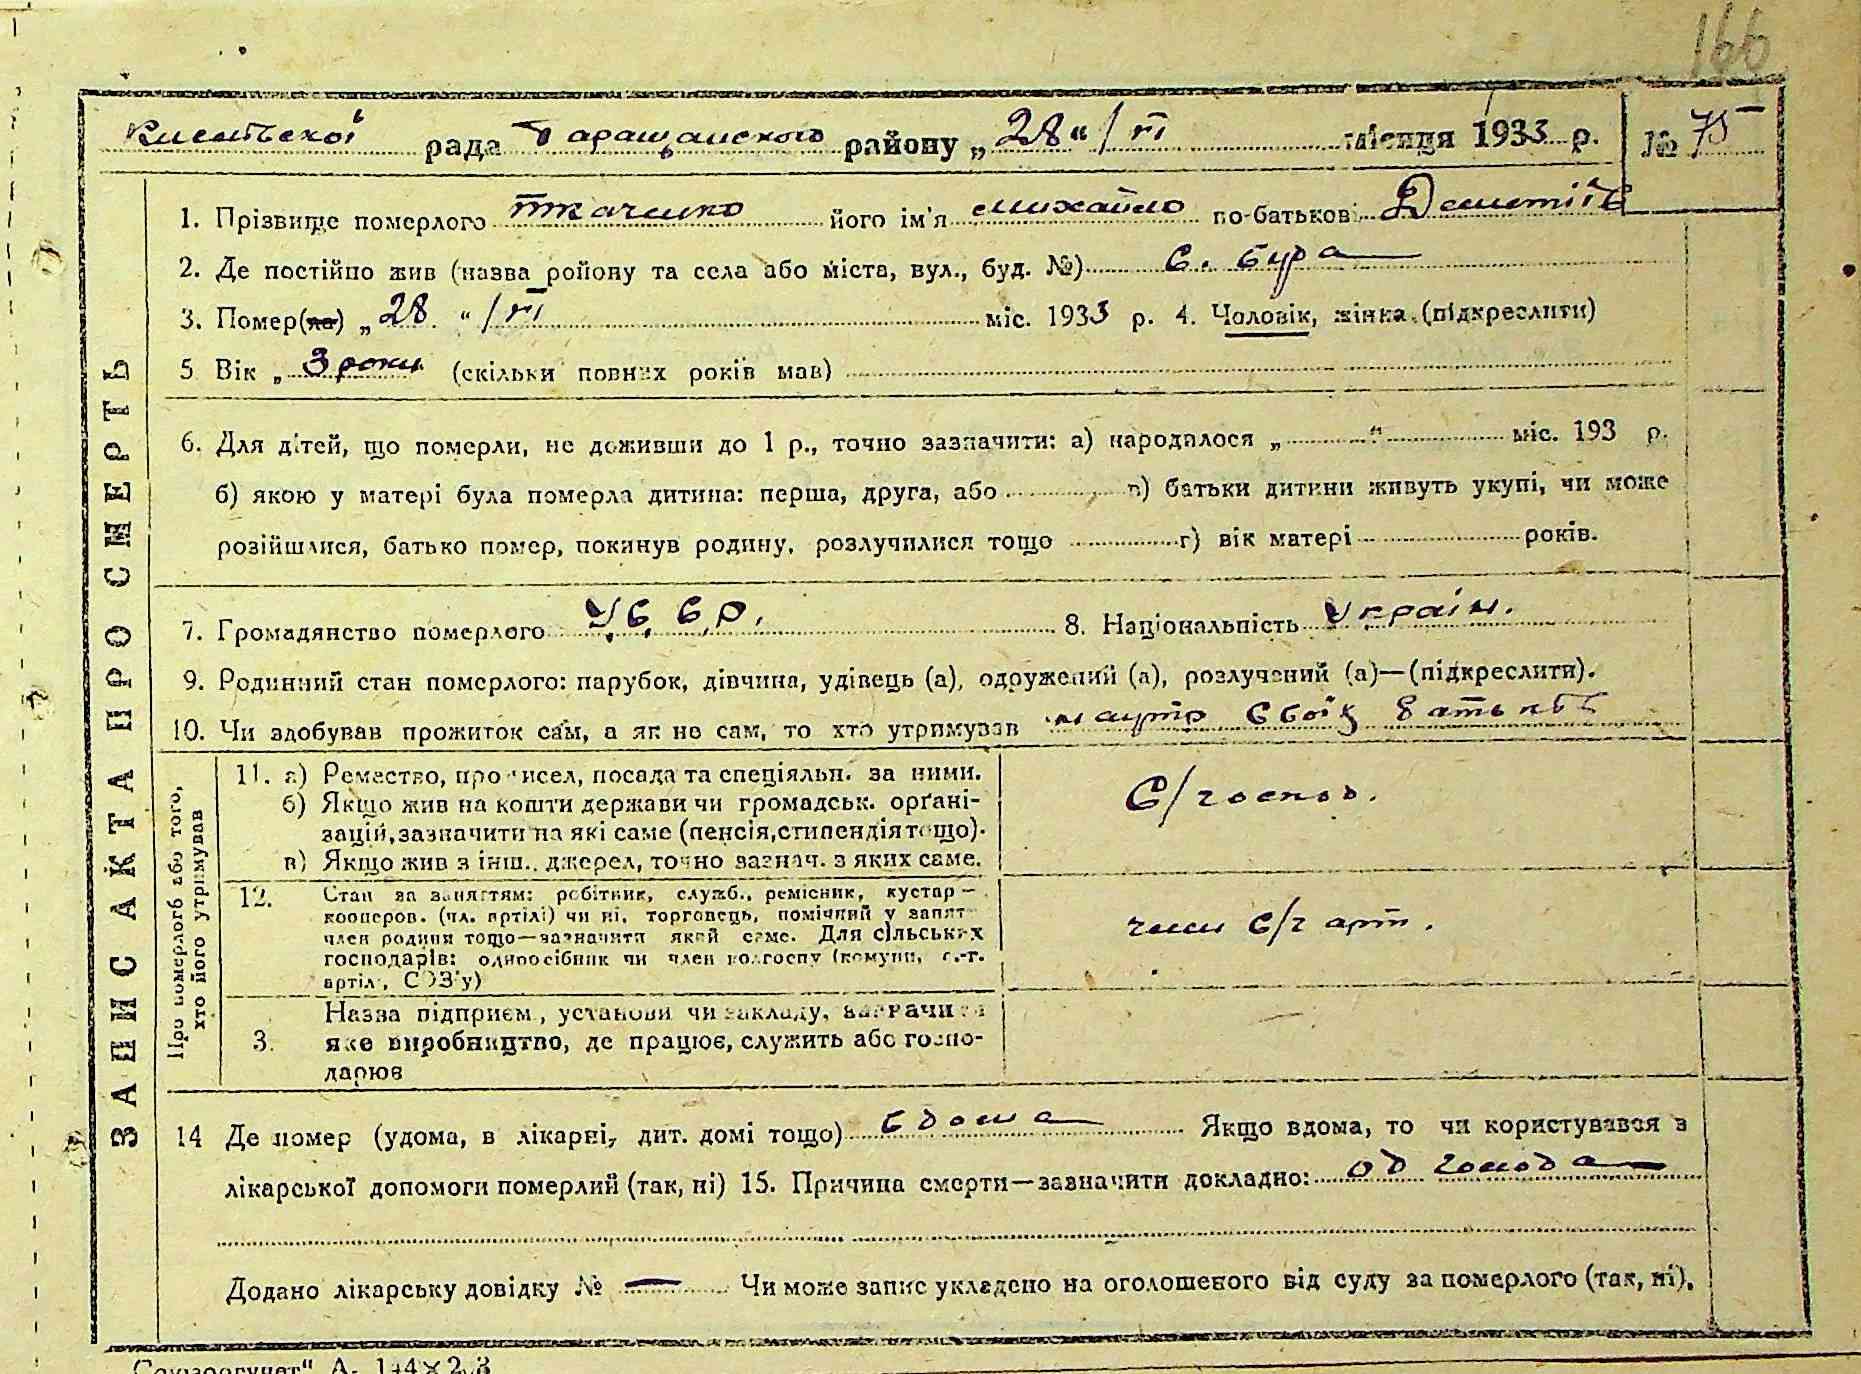 166
рада Таращанского району „28“/VI місяця 1933 р. № 75
1. Прізвище померлого Ткаченко його ім'я Михайло по-батькові
2. Де постійно жив (назва ройону та села або міста, вул., буд. №) С. Бура
3. Помер(ла) „28.“/VI міс. 1933 р. 4. Чоловік, жінка (підкреслити)
5 Вік „ 3 роки (скільки повних років мав)
6. Для дітей, що померли, не доживши до 1 р., точно зазначити: а) народилося „ “ міс. 193 р.
б) якою у матері була померла дитина: перша, друга, або в) батьки дитини живуть укупі, чи може
розійшлися, батько помер, покинув родину, розлучилися тощо г) вік матері років.
7. Громадянство померлого УССР. 8. Національність Україн.
9. Родинний стан померлого: парубок, дівчина, удівець (а), одружений (а), розлучений (а)—(підкреслити).
10. Чи здобував прожиток сам, а як не сам, то хто утримував своїх
ЗАПИС АКТА ПРО СМЕРТЬ
Про померлого або того,
хто його утримував
11. а) Ремество, промисел, посада та спеціяльн. за ними.
б) Якщо жив на кошти держави чи громадськ. орґані-
зацій, зазначити на які саме (пенсія, стипендія тощо).
в) Якщо жив з інш. джерел, точно зазнач. з яких саме.
С/господ.
12. Стан за заняттям: робітник, служб., ремісник, кустар—
кооперов. (чл. артілі) чи ні, торговець, помічний у занят
член родини тощо—зазначити який саме. Для сільських
господарів: одноосібник чи член колгоспу (комуни, с.-г.
артілі, СОЗ'у)
член С/г арт.
3. Назва підприєм., установи чи закладу, зазначити
яке виробництво, де працює, служить або госпо-
дарює
14 Де помер (удома, в лікарні, дит. домі тощо) вдома Якщо вдома, то чи користувався з
лікарської допомоги померлий (так, ні) 15. Причина смерти—зазначити докладно: од голода
Додано лікарську довідку № — Чи може запис укладено на оголошеного від суду за померлого (так, ні).